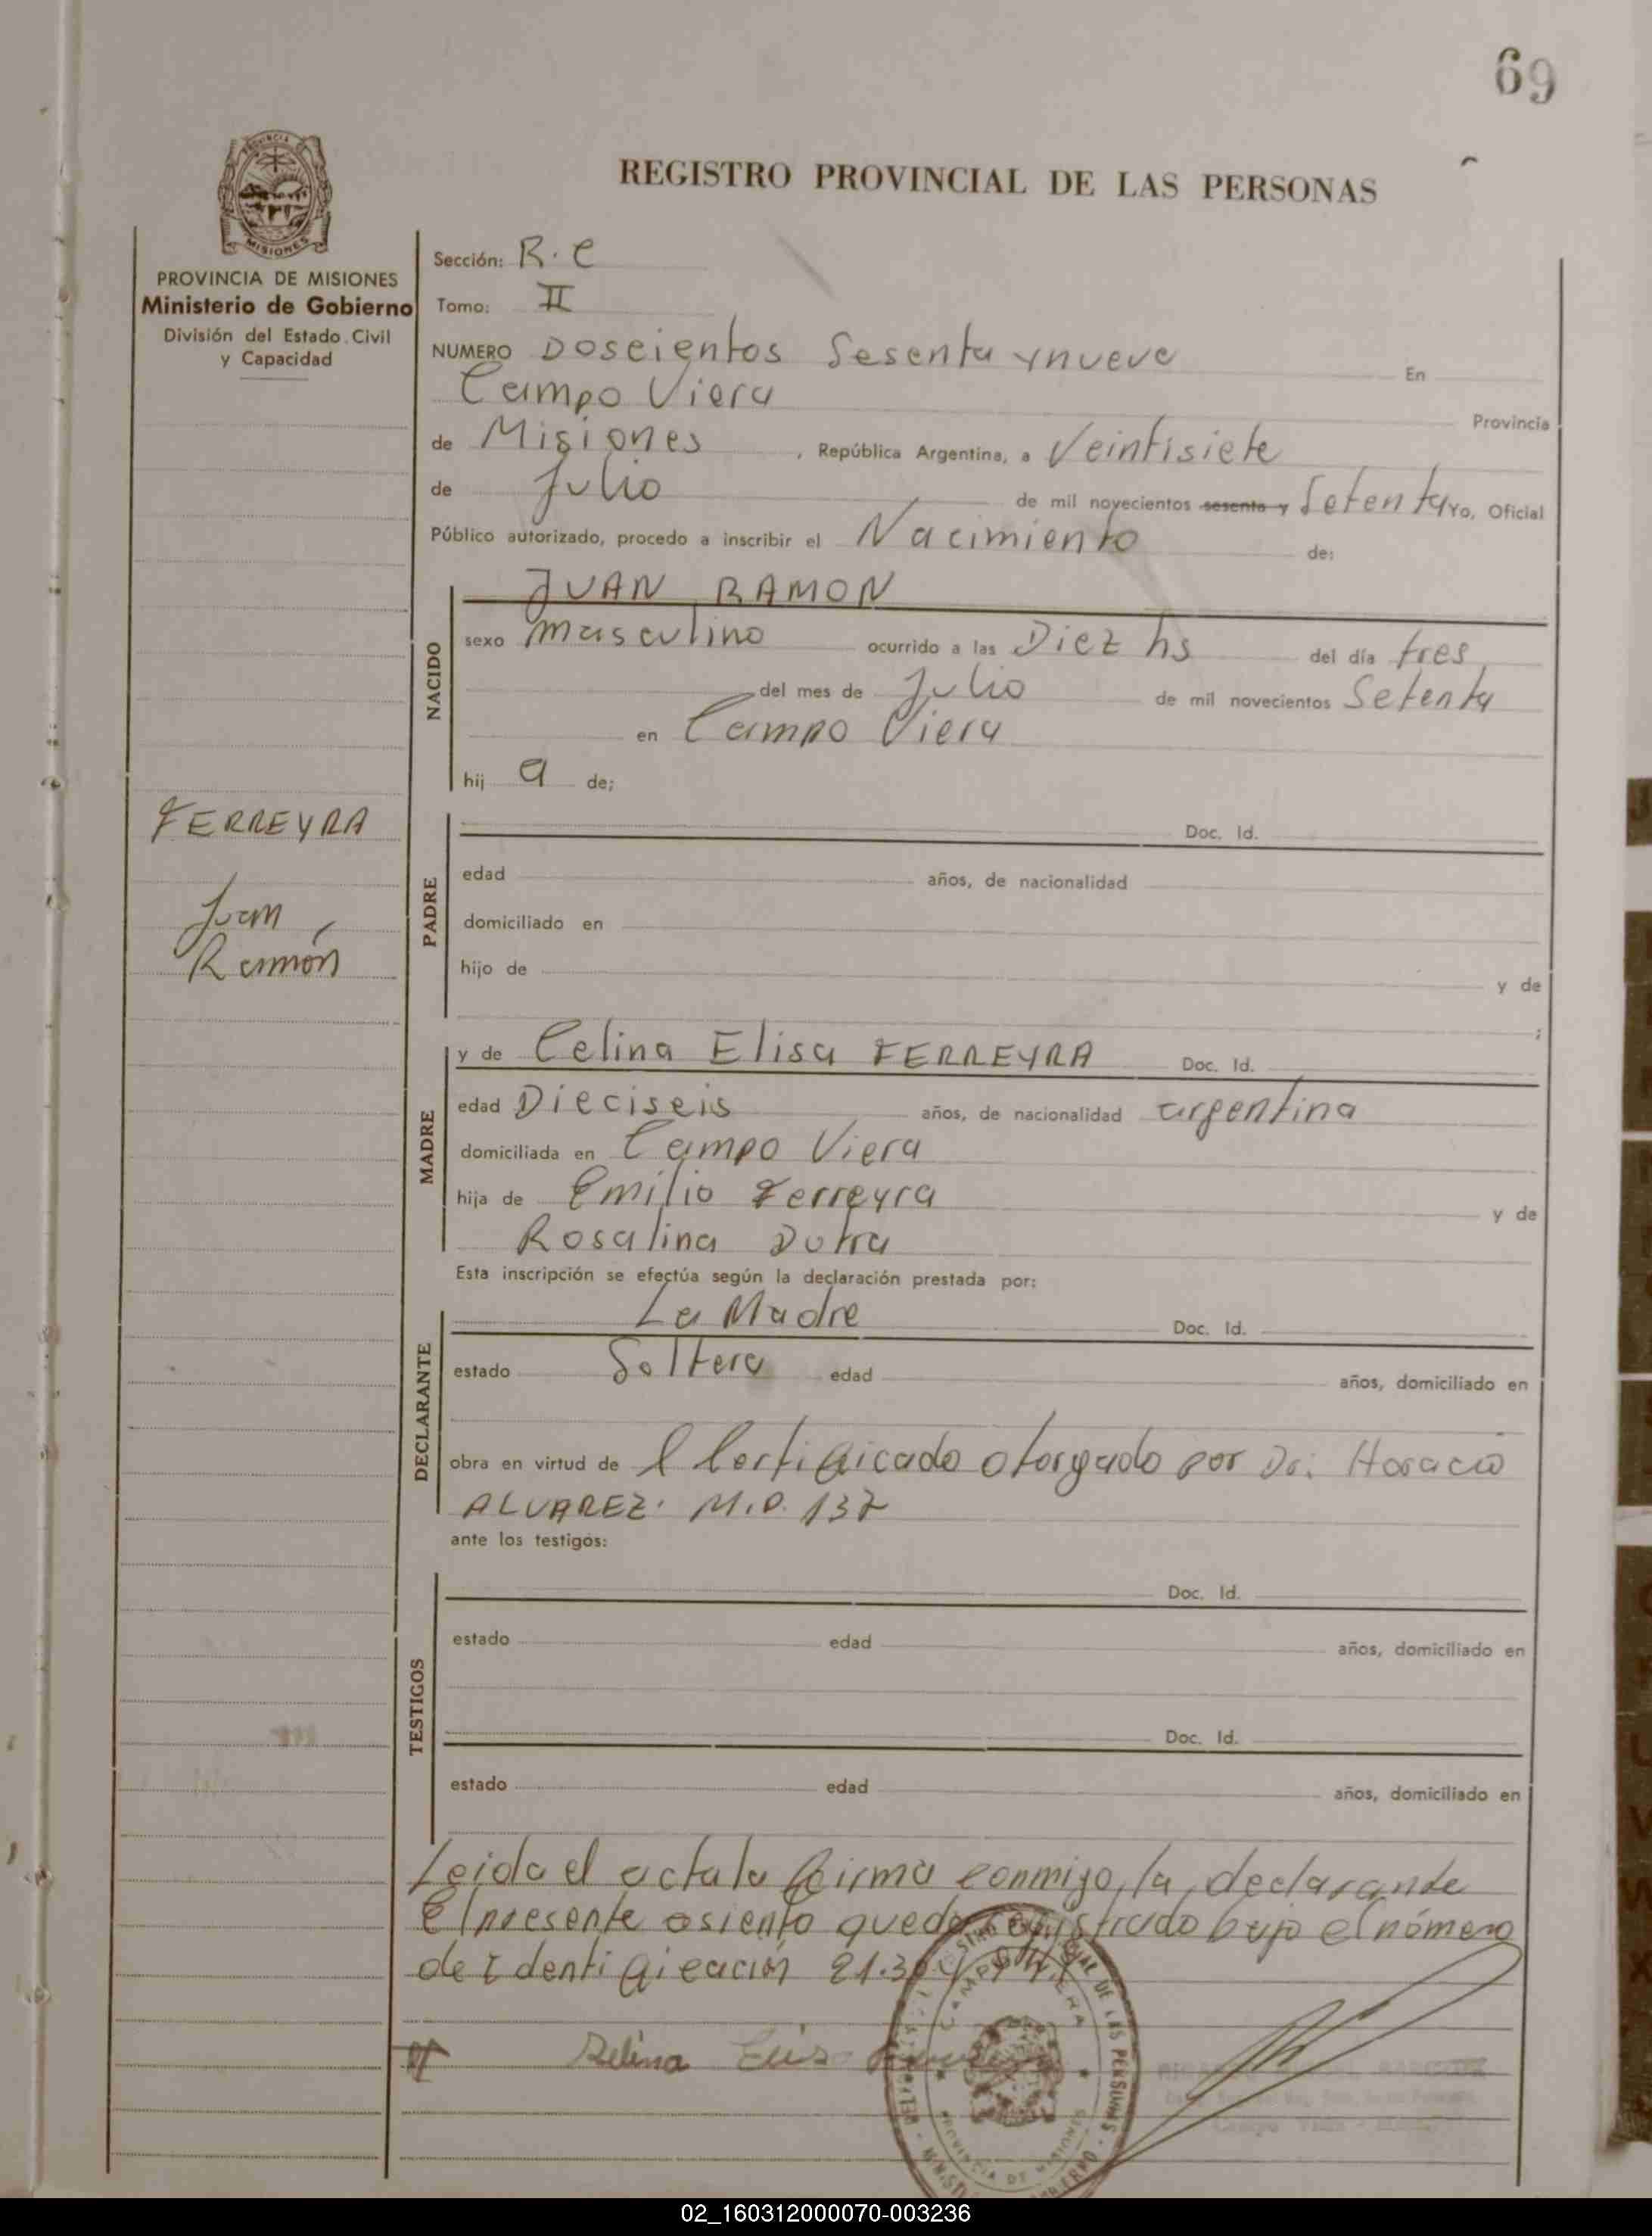 69
REGISTRO PROVINCIAL DE LAS PERSONAS
PROVINCIA DE MISIONES
Ministerio de Gobierno
División del Estado Civil
y Capacidad
Sección: R.C
Tomo: II
NUMERO Doscientos Sesenta y nueve En
Campo Viera Provincia
de Misiones, República Argentina, a Veintisiete
de Julio de mil novecientos sesenta y Setenta Yo, Oficial
Público autorizado, procedo a inscribir el Nacimiento de:
NACIDO
JUAN RAMON
sexo masculino ocurrido a las Diez hs del día tres
del mes de Julio de mil novecientos Setenta
en Campo Viera
hij a de;
FERREYRA
Juan
Ramón
PADRE
Doc. Id.
edad años, de nacionalidad
domiciliado en
hijo de y de
;
MADRE
y de Celina Elisa FERREYRA Doc. Id.
edad Dieciseis años, de nacionalidad argentina
domiciliada en Campo Viera
hija de Emilio Ferreyra y de
Rosalina Dutra
Esta inscripción se efectúa según la declaración prestada por:
DECLARANTE
La Madre Doc. Id.
estado Soltera edad años, domiciliado en
obra en virtud de l Certificado otorgado por Dr. Horacio
ALVAREZ. M.P. 137
ante los testigos:
TESTIGOS
Doc. Id.
estado edad años, domiciliado en
Doc. Id.
estado edad años, domiciliado en
Leida el acta la firma conmigo, la declarante
El presente asiento queda registrado bajo el número
de Identificación 21.30
Selina Elisa
CAMPO VIERA
PROVINCIA DE MISIONES
02_160312000070-003236